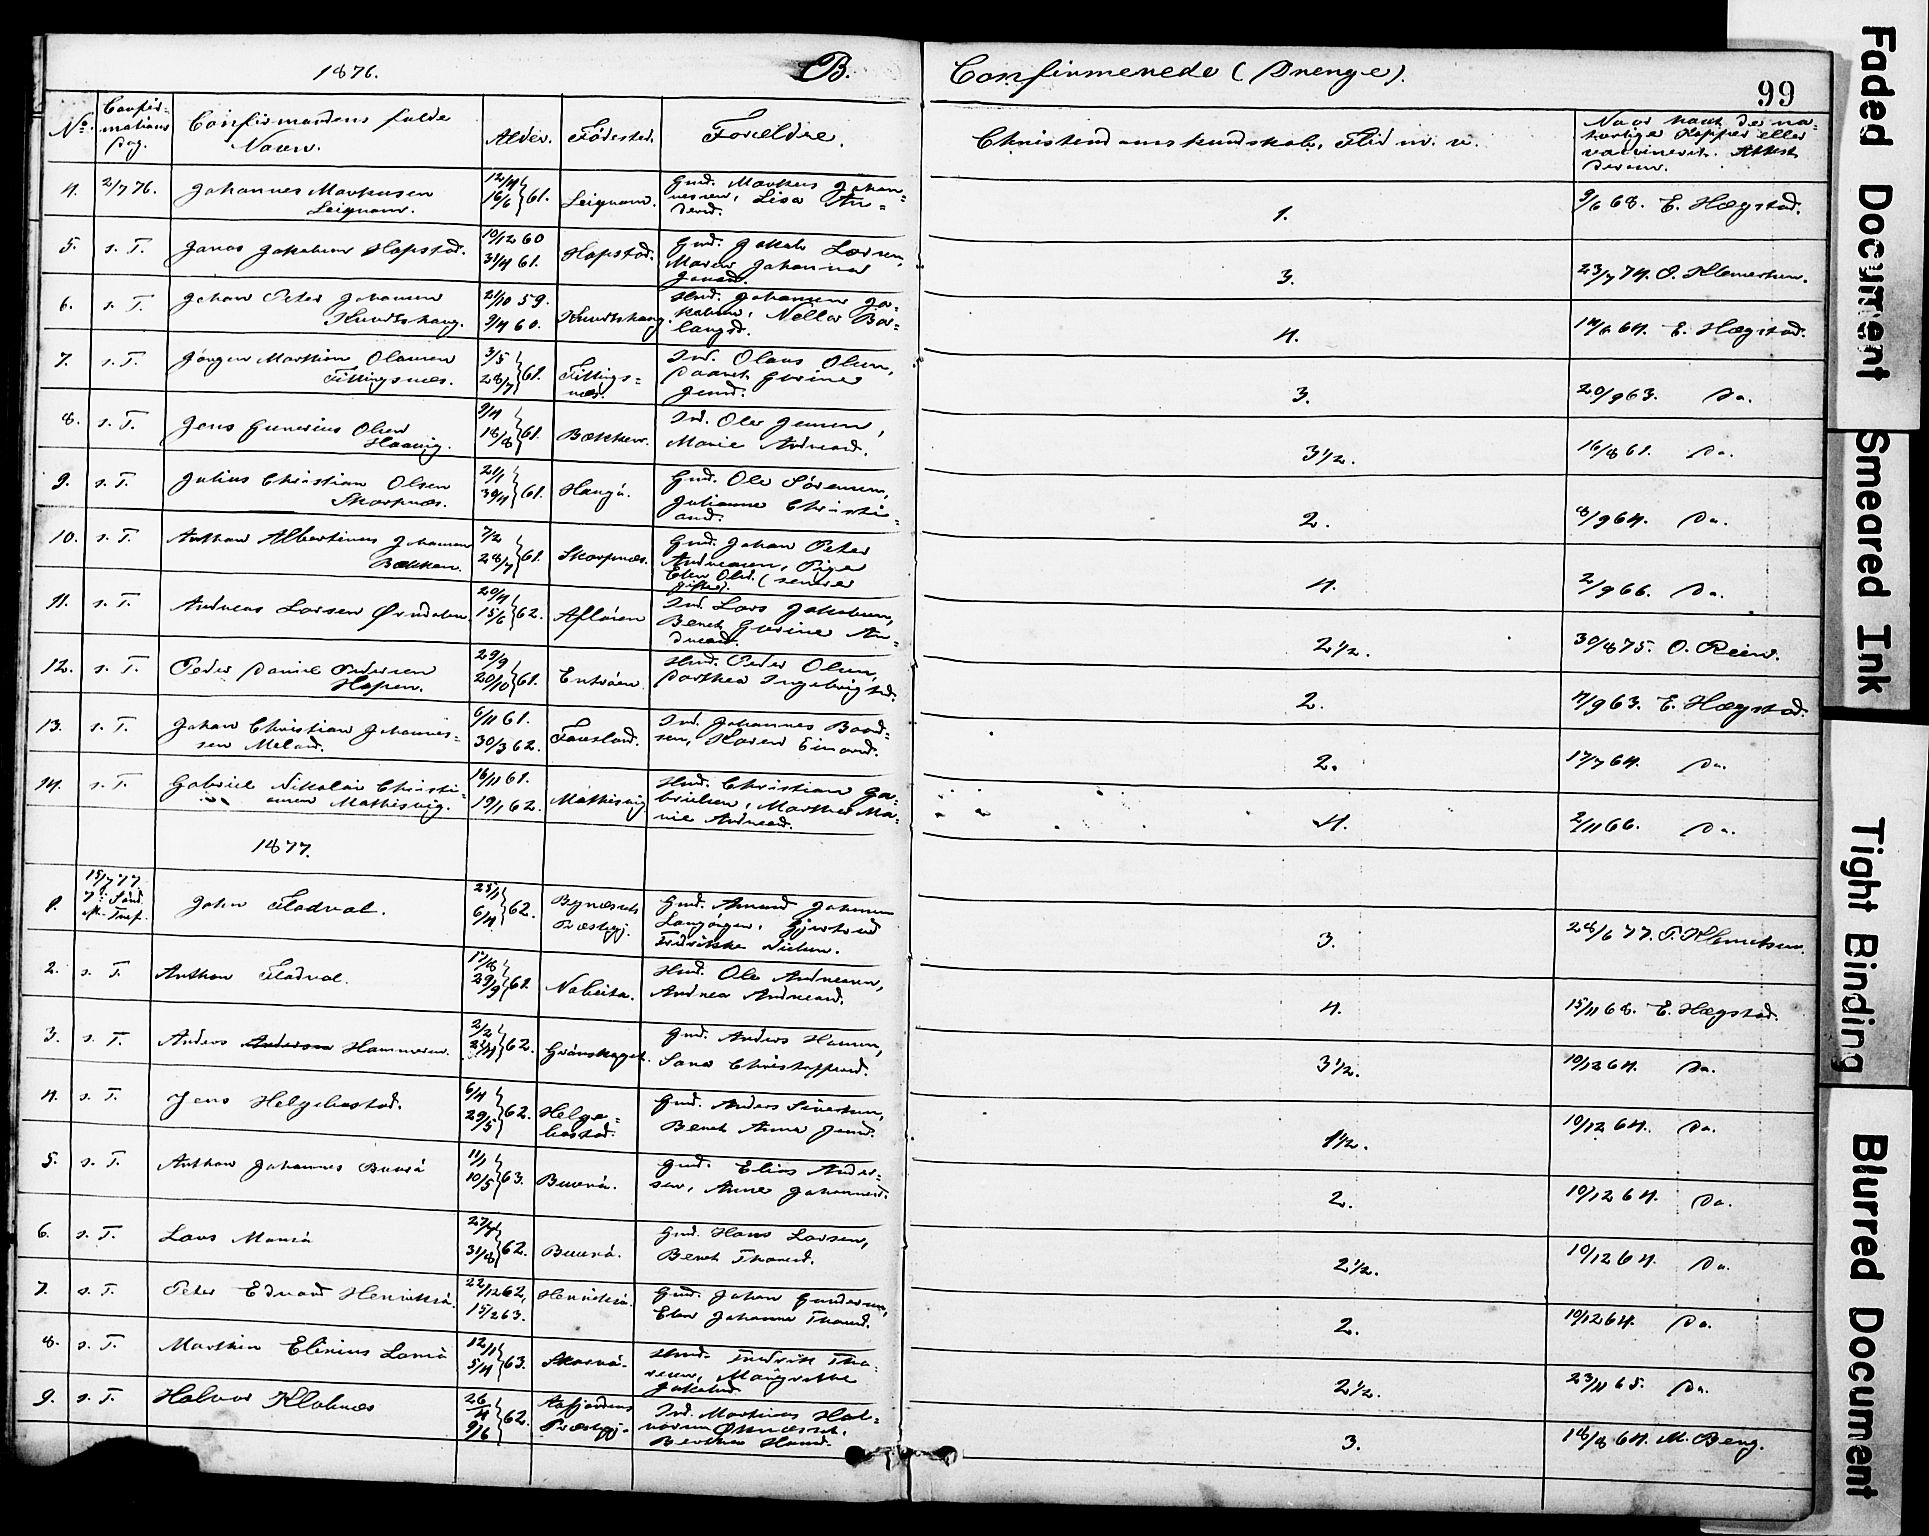 1876.
B.
Confirmerede (Drenge).
99
No.
Confir-
mations
Dag.
Confirmandens fulde
Navn.
Alder.
Fødested.
Forældre.
Christendomskundskab, Flid m. v.
Naar havt de na-
turlige Kopper eller
vaccineret. Attest
derom.
4. 2/7 76. Johannes Markusen
Leignam.
12/4 16/6 } 61. Leignam. Gmd. Markus Johan-
nesen, Lisa An-
dersd.
1. 9/6 68. E. Hægstad.
5. s. T. Jonas Jakobsen Hopstad. 10/12 60
31/4 61. Hopstad. Gmd. Jakob Larsen,
Maren Johanna
Jonasd.
3. 23/7 74. O. Klemetsen.
6. s. T. Johan Peter Johansen
Knudtshaug.
21/10 59.
9/4 60. Knudtshaug. Hmd. Johannes Ja-
kobsen,
4. 14/6 64. E. Hægstad.
7. s. T. Jørgen Martin Olausen
Fittingsnæs.
3/5 28/7 } 61. Fittings-
næs. Ind. Olaus Olsen,
Gurine
Jensd.
3. 20/9 63. Do.
8. s. T. Jens Gunerius Olsen
Haavig.
9/4 18/8 } 61. Bækken. Ind. Ole Jensen,
Marie Andreasd.
3 1/2. 16/8 61. Do.
9. s. T. Julius Christian Olsen
Skarpnæs.
21/1 30/11 } 61. Haugø. Gmd. Ole Sørensen,
Julianne Christi-
and.
2. 8/9 64. Do.
10. s. T. Anthon Albertinus Johansen
Bækken.
7/2 28/7 } 61. Skarpnæs. Gmd. Johan Peter
Andreasen, Pige
Elen Olsd. (senere
gifte).
4. 2/9 66. Do.
11. s. T. Andreas Larsen Ørndalen. 20/4 15/6 } 62. Afløien Ind. Lars Jakobsen,
Beret Gurine An-
dreasd.
2 1/2. 30/8 75. O. Reien.
12. s. T. Peder Daniel Pedersen
Hopen.
29/9 20/10 } 61. Entrøen. Hmd. Peder Olsen,
Dorthea Ingebrigtsd.
2. 4/9 63. E. Hægstad.
13. s. T. Johan Christian Johannes-
sen Meland.
6/11 61.
30/3 62. Fausland. Ind. Johannes Baard-
sen, Karen Simonsd.
2. 17/7 64. Do.
14. s. T. Gabriel Nikolai Christi-
ansen Mathisvig.
16/11 61.
19/1 62. Mathisvig Hmd. Christian Ga-
brielsen, Marthe Ma-
rie Andreasd.
4. 2/11 66. Do.
1877.
1. 15/7 77.
7de Sønd.
eft. Tref. John Fladval. 25/1 6/4 } 62. Bynæsets
Præstegj. Gmd. Amund Johnsen
Langørgen, Gjertrud
Fredrikke Nielsen.
3. 28/6 77. P. Klemetsen.
2. s. T. Anthon Fladval. 17/8 29/9 } 61. Nabeita. Hmd. Ole Andreasen,
Andrea Andreasd.
4. 15/11 68. E. Hægstad.
3. s. T. Anders Andersen Hammeren. 2/2 21/4 } 62. Grønskaget. Gmd. Anders Hansen,
Sara Christoffersd.
3 1/2. 10/12 64. Do.
4. s. T. Jens Helgebostad. 6/4 29/5 } 62. Helge-
bostad. Gmd. Anders Sivertsen,
Beret Anna Jensd.
1 1/2. 10/12 64. Do.
5. s. T. Anthon Johannes Buorø 11/1 10/5 } 63. Buorø. Gmd. Elias Ander-
sen, Anne Johannesd.
2. 10/12 64. Do.
6. s. T. Lars Mansø 27/7 31/8 } 62. Buorø. Gmd. Hans Larsen,
Beret Thomasd.
2 1/2. 10/12 64. Do.
7. s. T. Peter Edvard Henriksø. 22/12 62,
15/2 63. Henriksø. Gmd. Johan Gundersen,
Elen Johanna Thomasd.
2. 10/12 64. Do.
8. s. T. Marthin Elinius Lamø 12/1 5/4 } 63. Skorø. Hmd. Fredrik Tho-
resen, Margrethe
Jakobsd.
2 1/2. 23/11 65. Do.
9. s. T. Halvor Klobnæs 26/4 9/6 } 62. Aafjordens
Præstegj. Ind. Martinus Hal-
vorsen
Berthea Hansd.
3. 18/8 64. M. Berg.
Faded Document
Smeared Ink
Tight Binding
Blurred Document